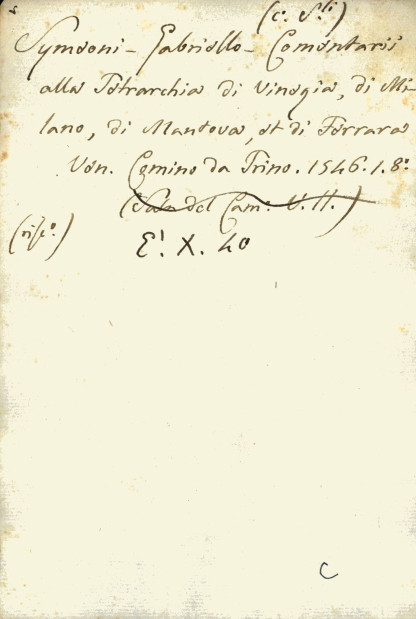 (c. S.ti)
Symeoni - Gabriello - Comentarii
alla Tetrarchia di Vinegia, di Mi-
lano, di Mantova, et di Ferrara
Ven. Comino da Trino. 1546. 1. 8.o
(Sala del Cam.o V. 11.)
(risc.o) E! X. 40
C